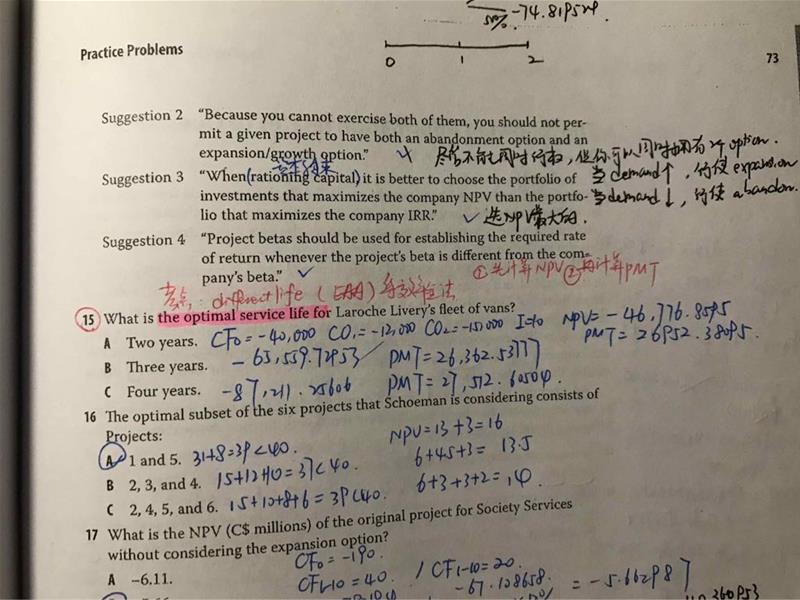 50% -74.819524
0 1 2
Practice Problems
73
Suggestion 2 “Because you cannot exercise both of them, you should not per-
mit a given project to have both an abandonment option and an
expansion/growth option.” 尽管不能同时行权，但你可以同时拥有2个option.
当demand↑，行使expansion
Suggestion 3 “When (rationing capital) it is better to choose the portfolio of
investments that maximizes the company NPV than the portfo-
当demand↓，行使abandon.
lio that maximizes the company IRR.” ✓ 选NPV最大的.
Suggestion 4 “Project betas should be used for establishing the required rate
of return whenever the project’s beta is different from the com-
pany’s beta.” ✓
①先计算NPV ②再计算PMT
考点: different life (EAA)
15 What is the optimal service life for Laroche Livery’s fleet of vans?
A Two years. CF0 = -40,000 CO1 = -12,000 CO2 = -15,000 I=10 NPV = -46,776.8595
PMT = 26952.38095.
B Three years. -65,559.72953 PMT = 26,362.53777
C Four years. -87,211.25606 PMT = 27,512.60504.
16 The optimal subset of the six projects that Schoeman is considering consists of
Projects:
NPV = 13+3=16
A 1 and 5. 31+8=39<40.
6+4.5+3= 13.5
B 2, 3, and 4. 15+12+10=37<40.
6+3+3+2=14
C 2, 4, 5, and 6. 15+10+8+6=39<40.
17 What is the NPV (C$ millions) of the original project for Society Services
without considering the expansion option?
CF0 = -190.
A −6.11.
CF1-10 = 40. / CF1-10 = 20.
-67.108658 = -5.662987